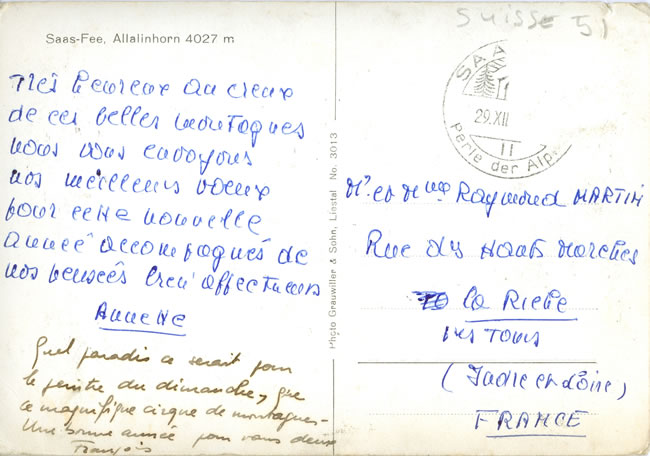 Saas-Fee, Allalinhorn 4027 m
Très heureux au creux
de ces belles montagnes
nous vous envoyons
nos meilleurs voeux
pour cette nouvelle
année accompagnés de
nos pensées bien affectueuses
Annette
Quel paradis ce serait pour
le peintre du dimanche, que
ce magnifique cirque de montagnes -
Une bonne année pour vous deux
François
Photo Grauwiller & Sohn, Liestal No. 3013
SUISSE 51
SAA
29.XII
11
Perle der Alp
Mr et Mme Raymond MARTIN
Rue des Hauts Marches
La Riche
les Tours
(Indre et Loire)
FRANCE